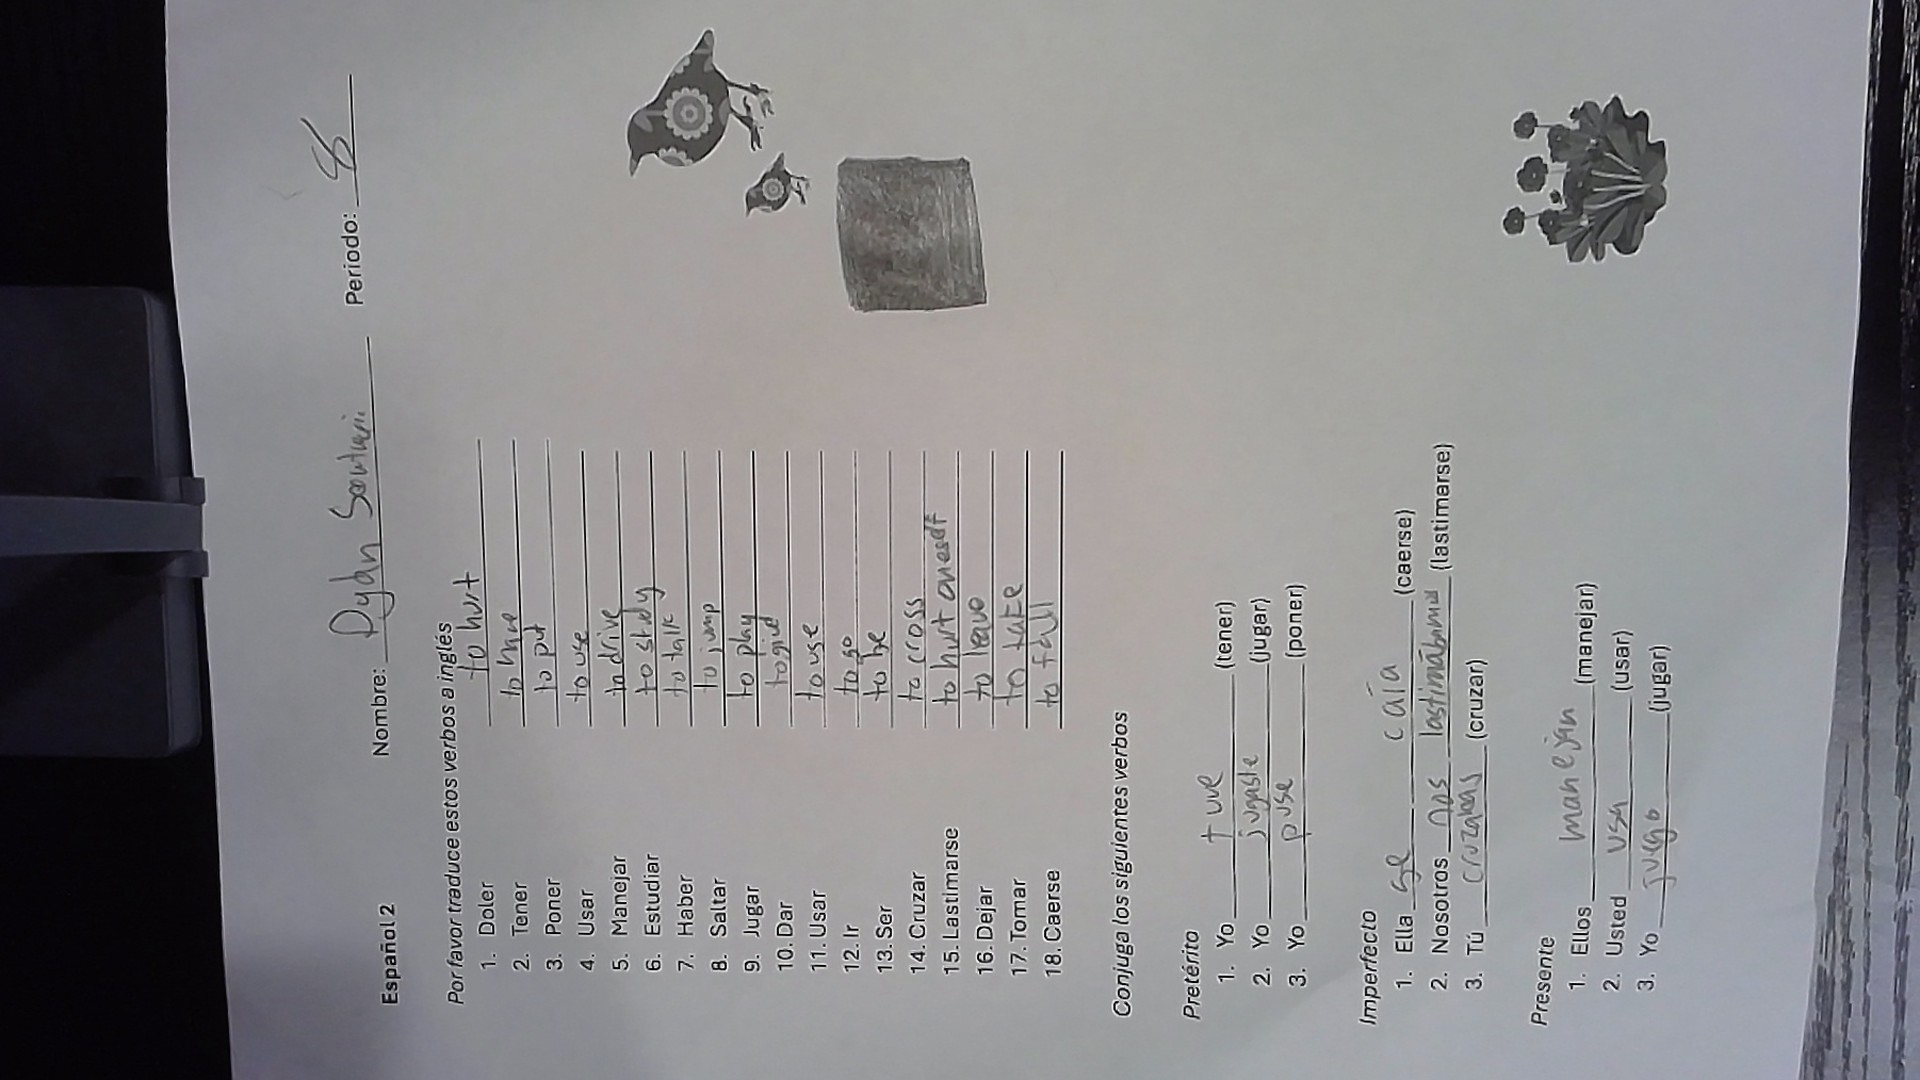 Español 2 Nombre: Dylan Periodo:
Por favor traduce estos verbos a inglés
1. Doler to hurt
2. Tener to have
3. Poner to put
4. Usar to use
5. Manejar to drive
6. Estudiar to study
7. Haber to talk
8. Saltar to jump
9. Jugar to play
10. Dar to give
11. Usar to use
12. Ir to go
13. Ser to be
14. Cruzar to cross
15. Lastimarse to hurt oneself
16. Dejar to leave
17. Tomar to take
18. Caerse to fall
Conjuga los siguientes verbos
Pretérito
1. Yo tuve (tener)
2. Yo jugaste (jugar)
3. Yo puse (poner)
Imperfecto
1. Ella se caía (caerse)
2. Nosotros nos lastimábamos (lastimarse)
3. Tú cruzabas (cruzar)
Presente
1. Ellos manejan (manejar)
2. Usted usa (usar)
3. Yo juego (jugar)